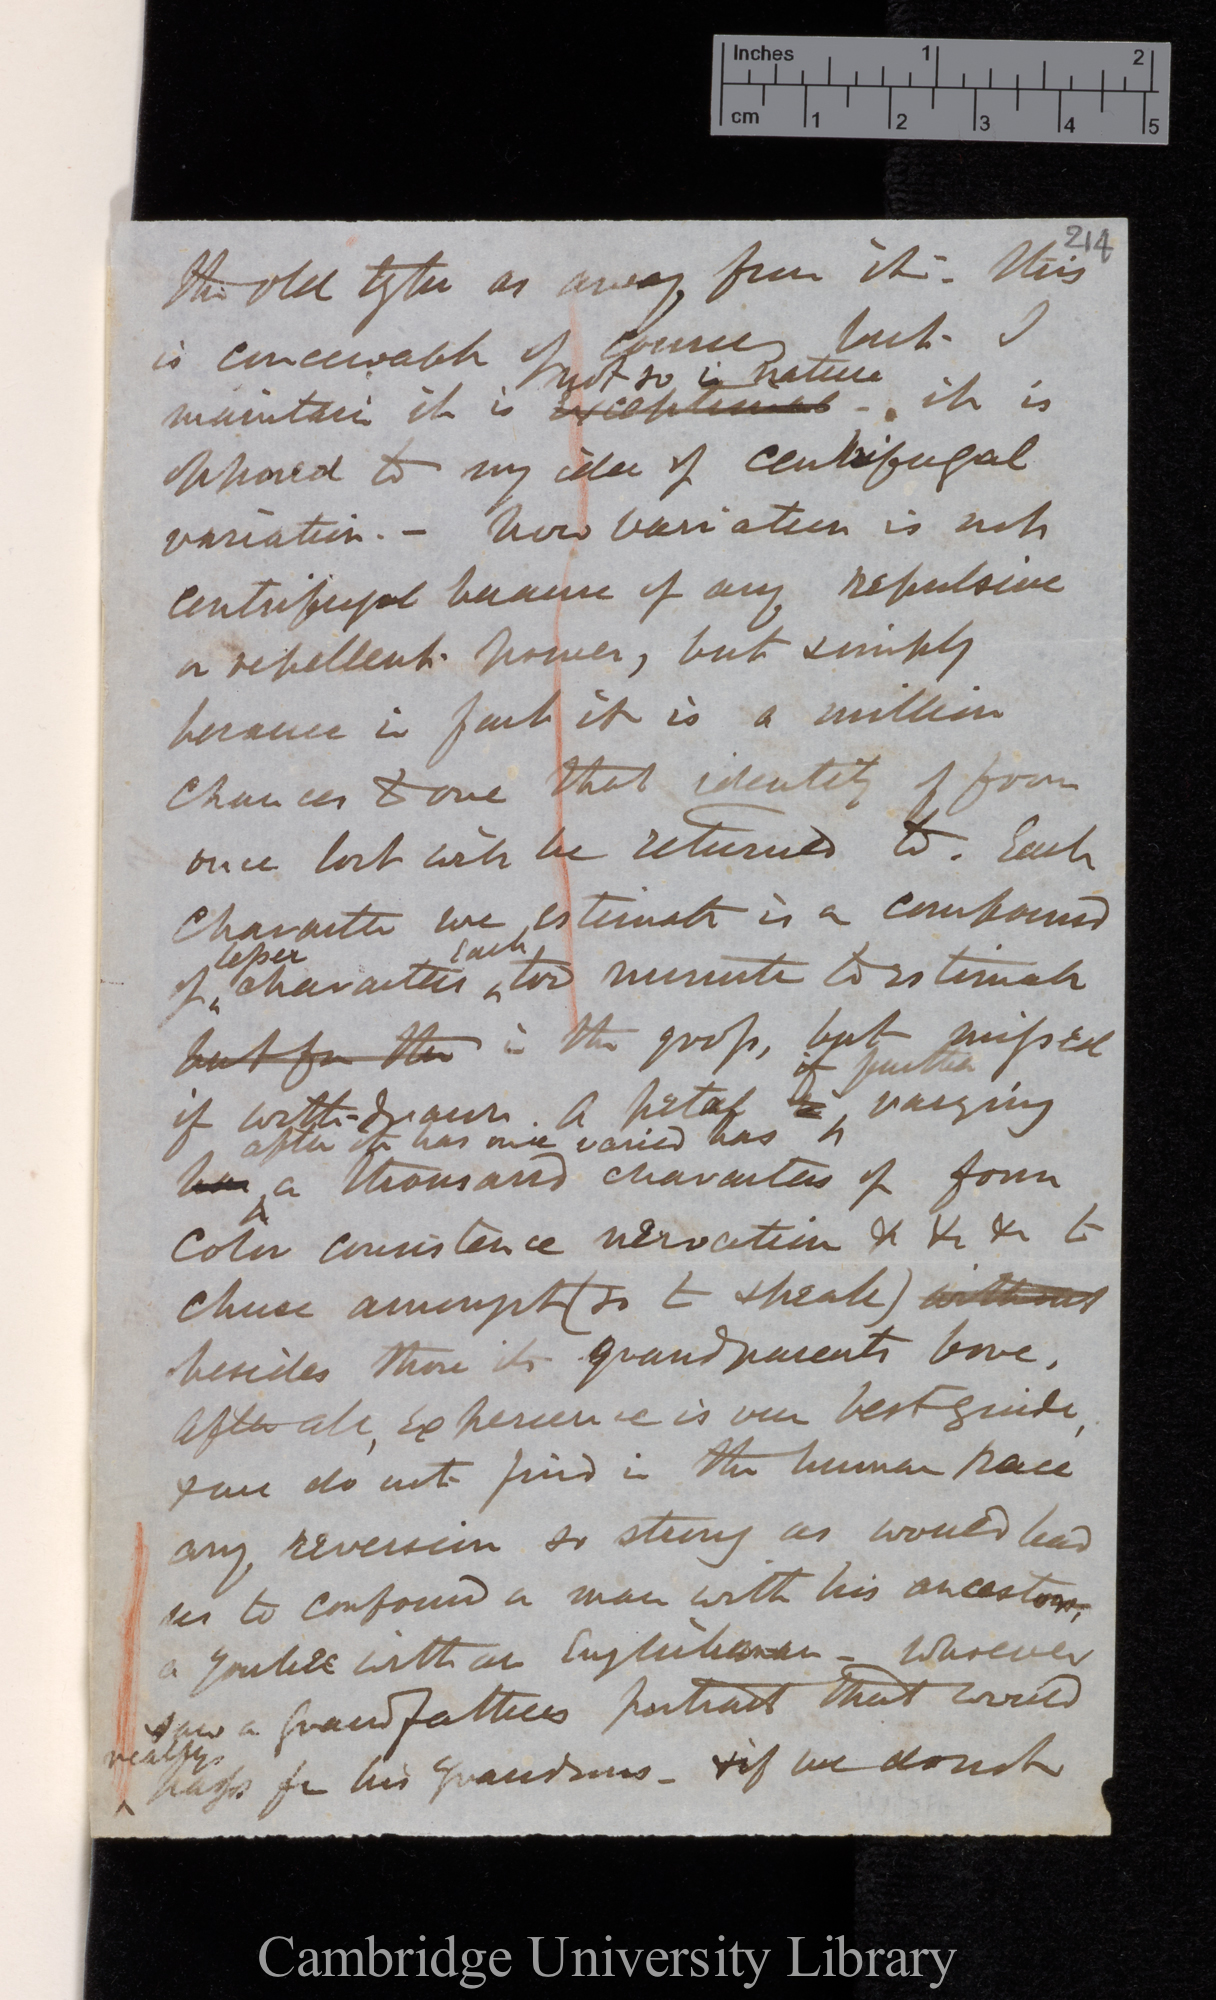 Inches 1 2
cm 1 2 3 4 5
214
the old type as away from it. This
is conceivable of course, but I
not so in nature
maintain it is exceptional - it is
opposed to my idea of centrifugal
variation. - Now variation is not
centrifugal because of any repulsive
or repellent power, but simply
because in fact it is a million
chances to one that identity of form
once lost will be returned to. Each
character we estimate is a compound
lesser each
of characters too minute to estimate
but for the in the gross, but missed
if further
if with-drawn. A petal is varying
after it has once varied has
has a thousand characters of form
color consistence nervation & &c &c to
chuse amongst (so to speak) without
besides those its grandparents bore.
After all, experience is our best guide,
& we do not find in the human race
any reversion so strong as would lead
us to confound a man with his ancestors,
a Yankee with an Englishman - Whoever
saw a grandfathers portrait that would
really
pass for his grandsons - & if we do not
Cambridge University Library